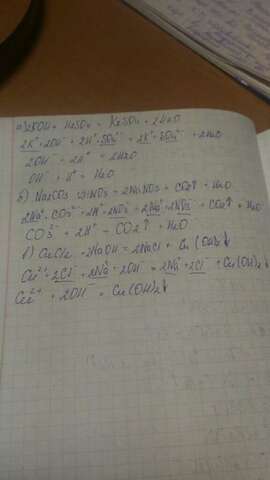 а) 2KOH + H₂SO₄ = K₂SO₄ + 2H₂O
2K⁺ + 2OH⁻ + 2H⁺ + SO₄²⁻ = 2K⁺ + SO₄²⁻ + 2H₂O
2OH⁻ + 2H⁺ = 2H₂O
OH⁻ + H⁺ = H₂O
б) Na₂CO₃ + 2HNO₃ = 2NaNO₃ + CO₂↑ + H₂O
2Na⁺ + CO₃²⁻ + 2H⁺ + 2NO₃⁻ = 2Na⁺ + 2NO₃⁻ + CO₂↑ + H₂O
CO₃²⁻ + 2H⁺ = CO₂↑ + H₂O
в) CuCl₂ + 2NaOH = 2NaCl + Cu(OH)₂↓
Cu²⁺ + 2Cl⁻ + 2Na⁺ + 2OH⁻ = 2Na⁺ + 2Cl⁻ + Cu(OH)₂↓
Cu²⁺ + 2OH⁻ = Cu(OH)₂↓